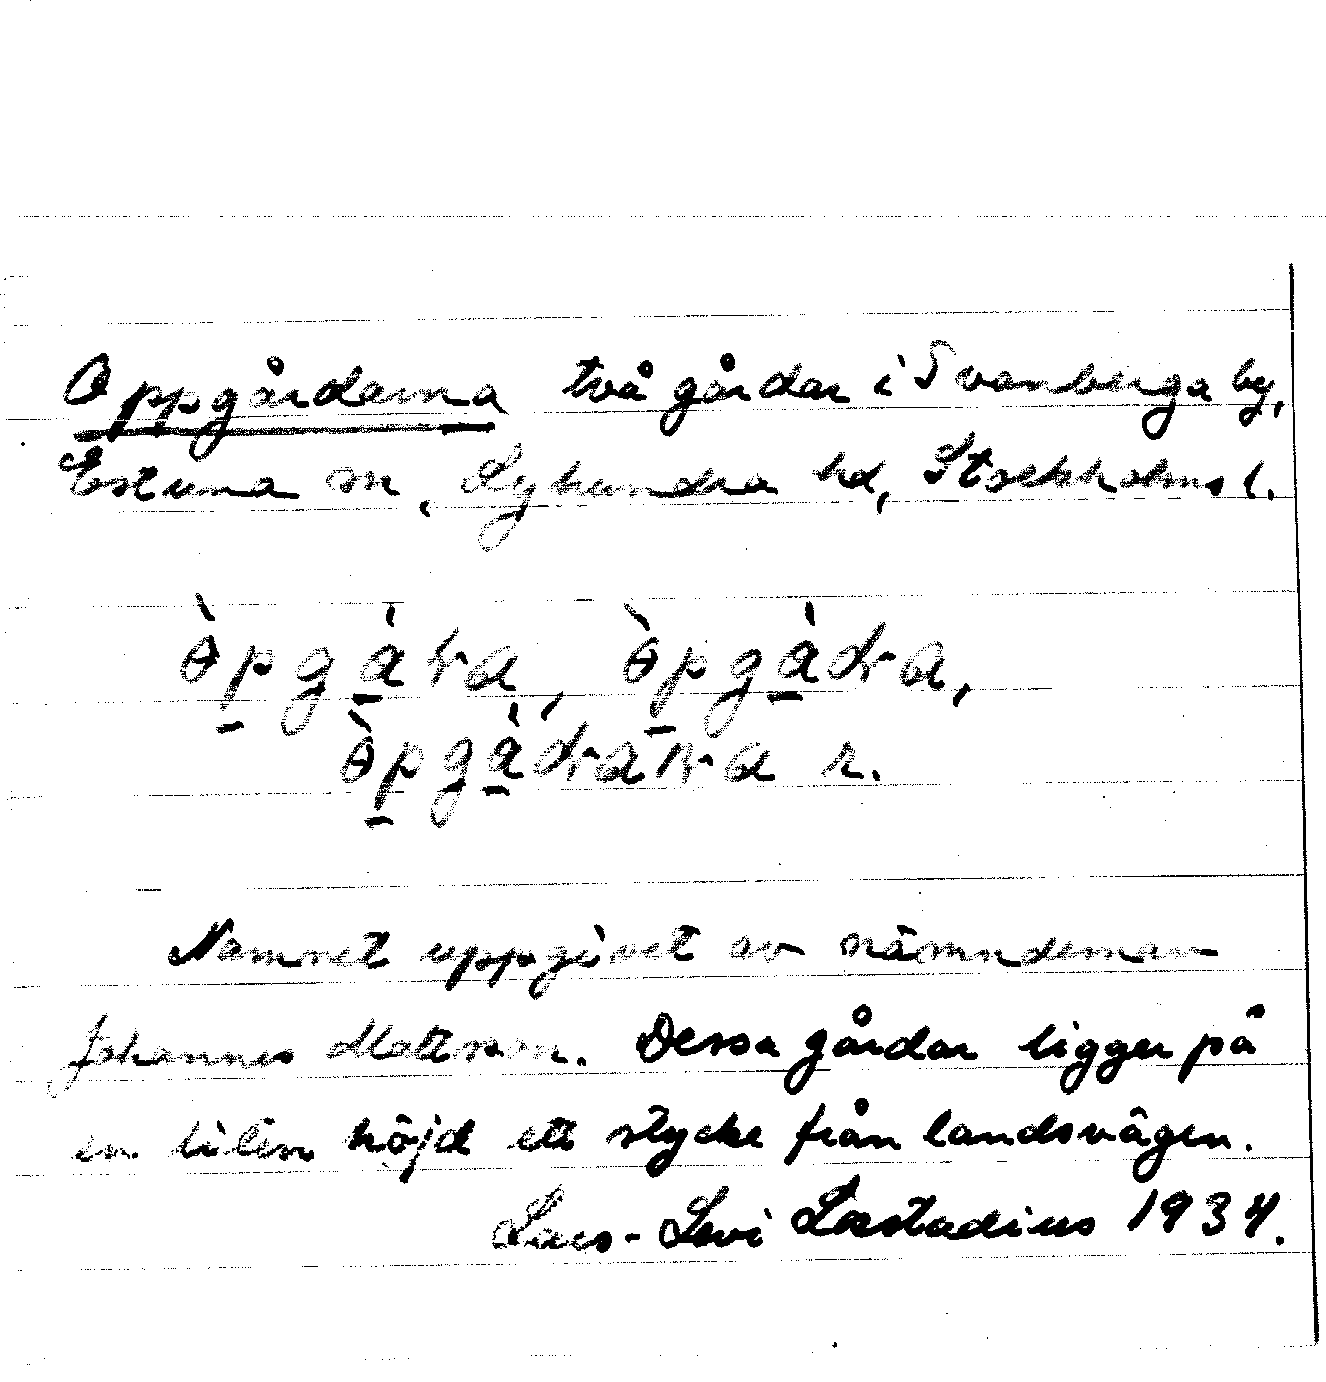 Oppgårdarna två gårdar i Svanberga by,
Estuna sn, Lyhundra hd, Stockholms l.
ɵ̀pgára, ɵ̀pgádra,
ɵ̀pgádrarna r.
Namnet uppgivet av nämndeman
Johannes Mattsson. Dessa gårdar ligger på
en liten höjd ett stycke från landsvägen.
Lars-Levi Læstadius 1934.